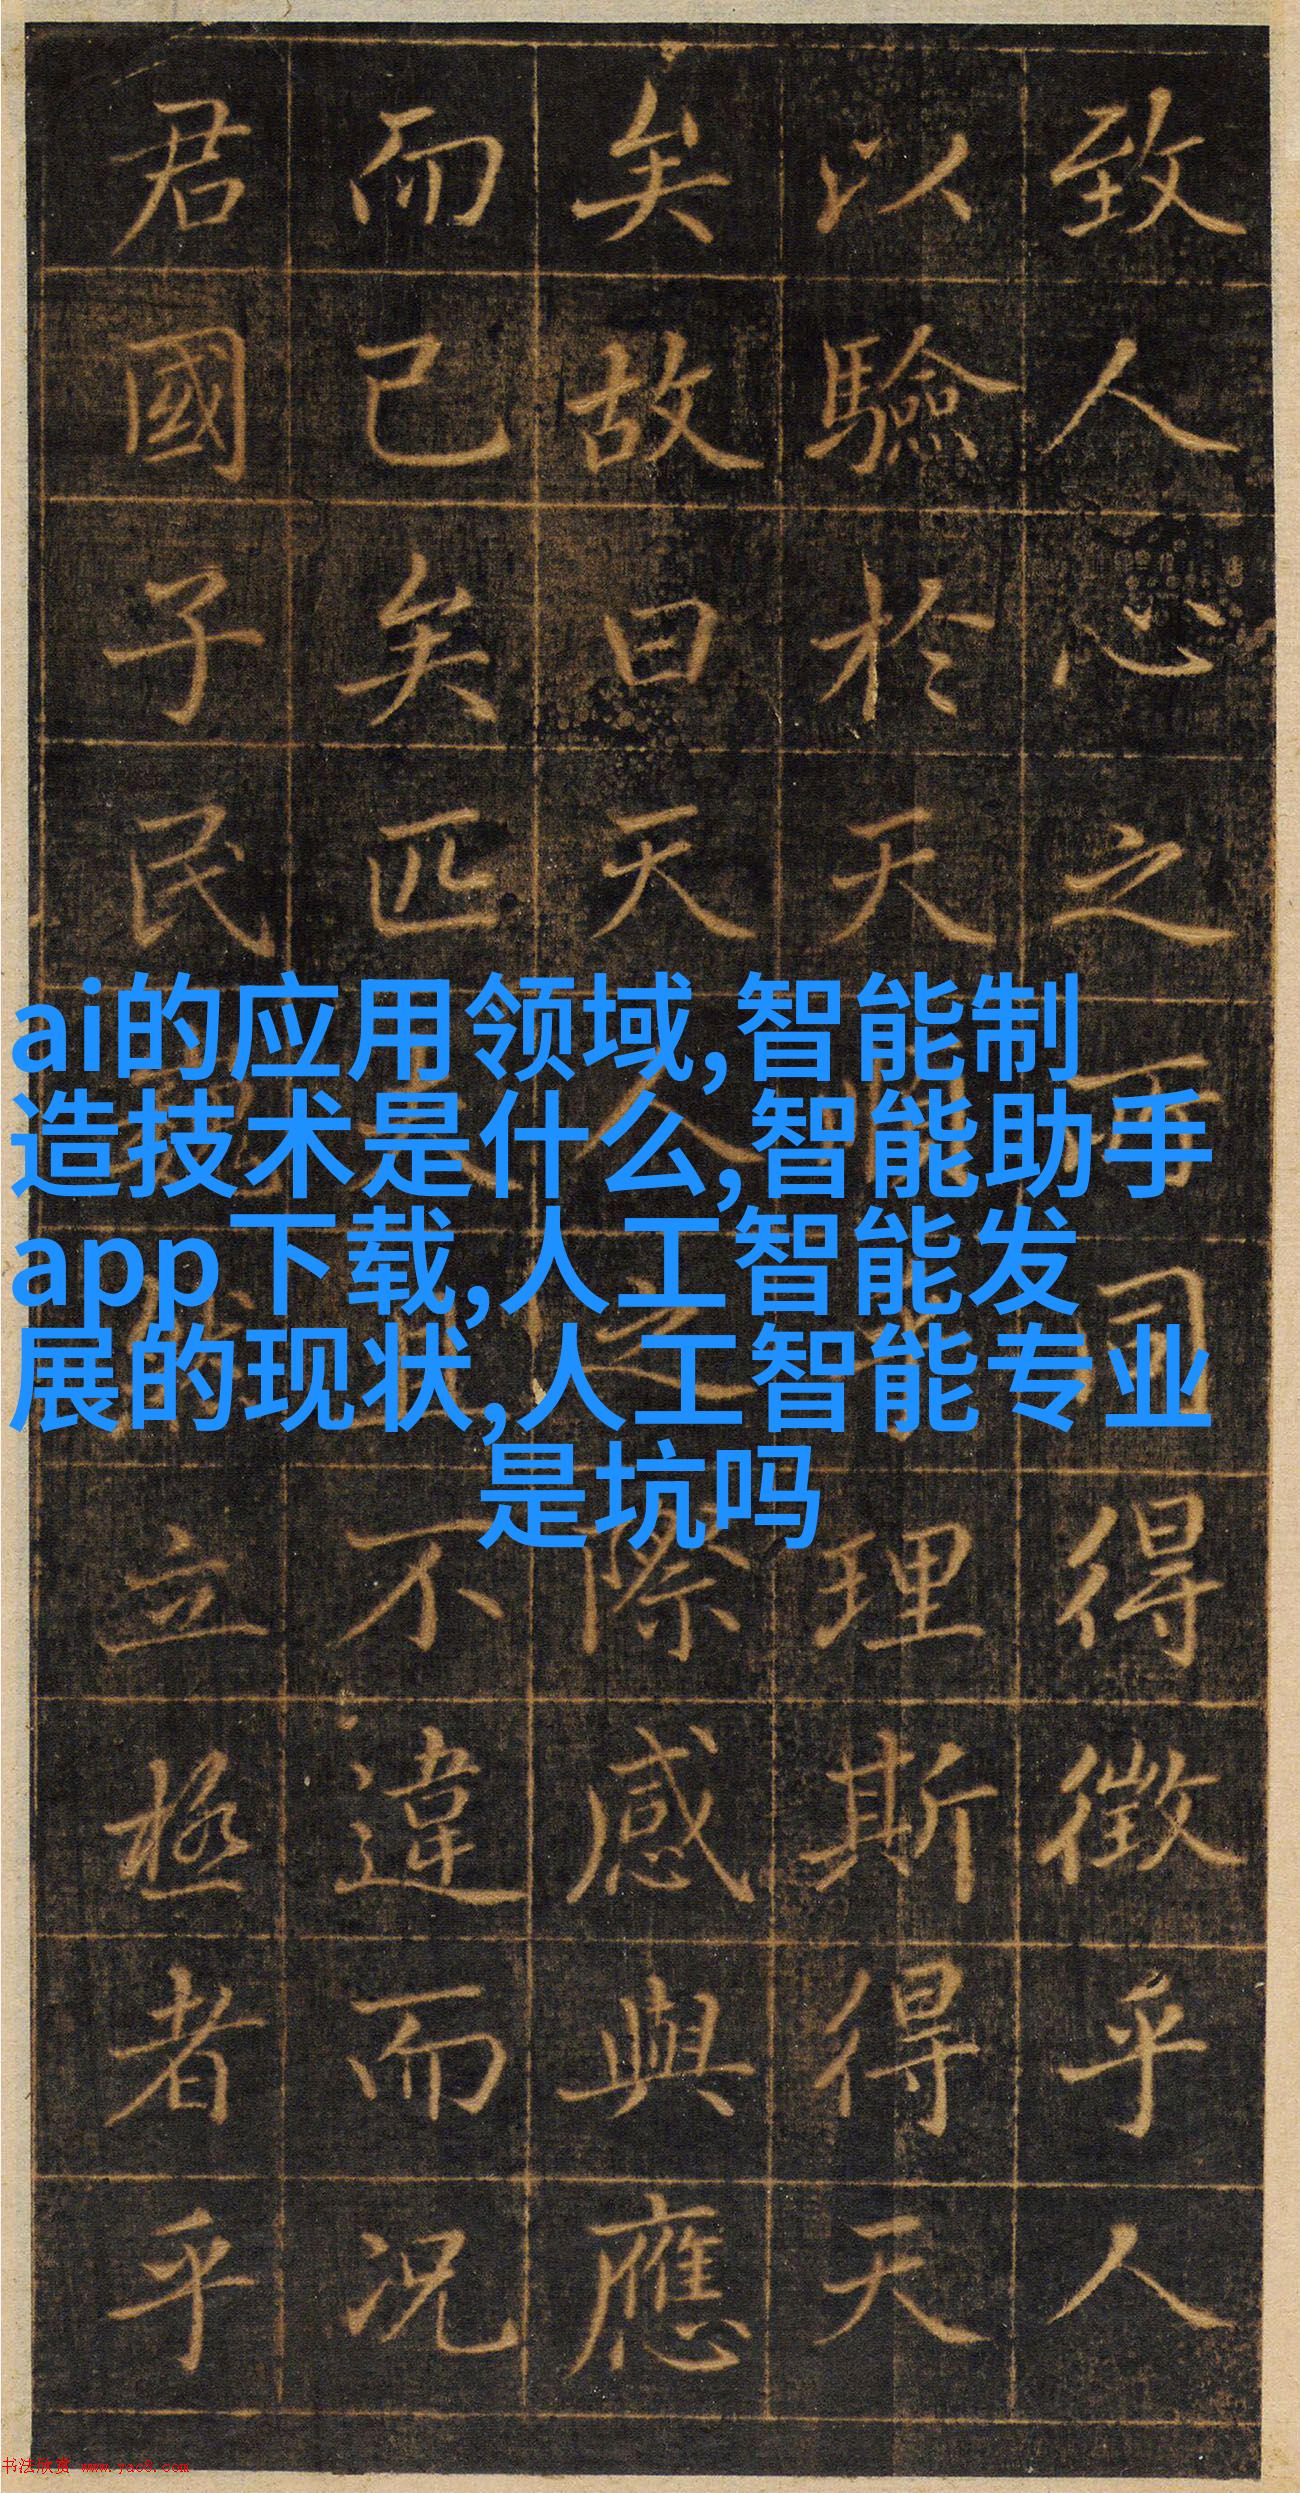 致人心之同得徵乎人
以驗於天理斯得天
矣故曰天人之際感與應
而已矣匹不違而況
君國子民立極者乎
ai的应用领域,智能制
造技术是什么,智能助手
app下载,人工智能发
展的现状,人工智能专业
是坑吗
书法欣赏 www.yac8.com